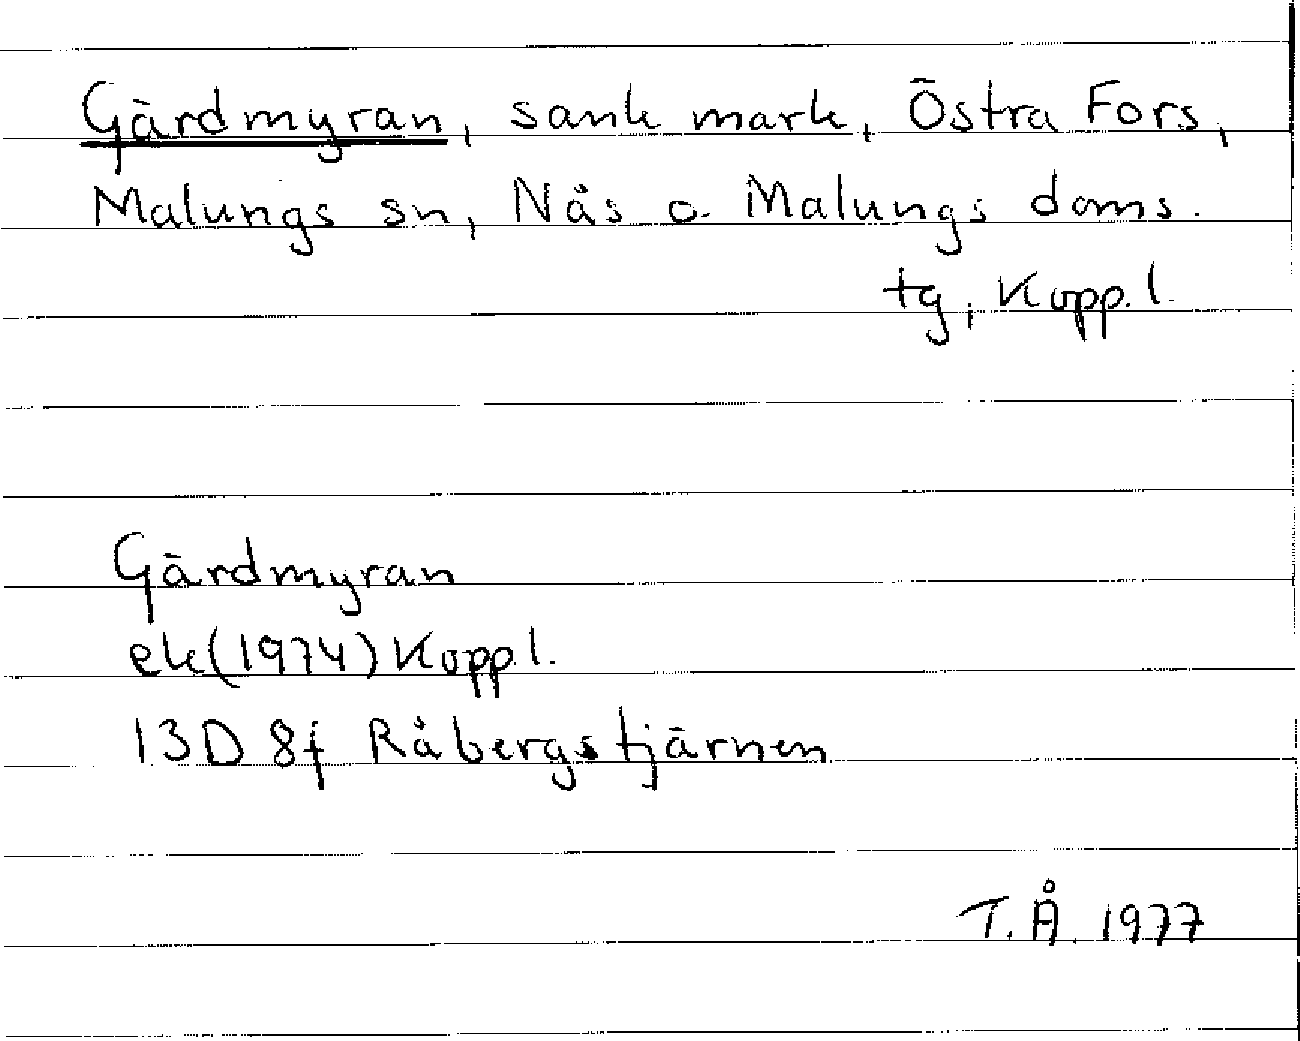 Gärdmyran, sank mark, Östra Fors,
Malungs sn, Nås o. Malungs doms.
tg, Kopp.l.
Gärdmyran
ek(1974) Kopp.l.
13D 8f Råbergstjärnen
T.Å. 1977